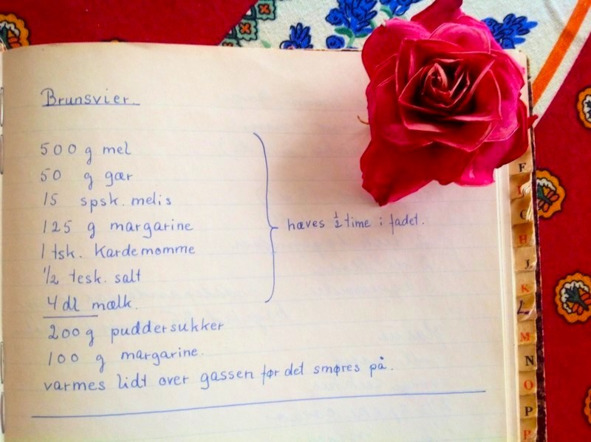 Brunsvier.
500 g mel
50 g gær
15 spsk. melis
125 g margarine
1 tsk. Kardemomme
1/2 tesk. salt
4 dl mælk.
hæves 1/2 time i fadet.
200 g puddersukker
100 g margarine.
varmes lidt over gassen før det smøres på.
F
H
J
K
L
M
N
O
P